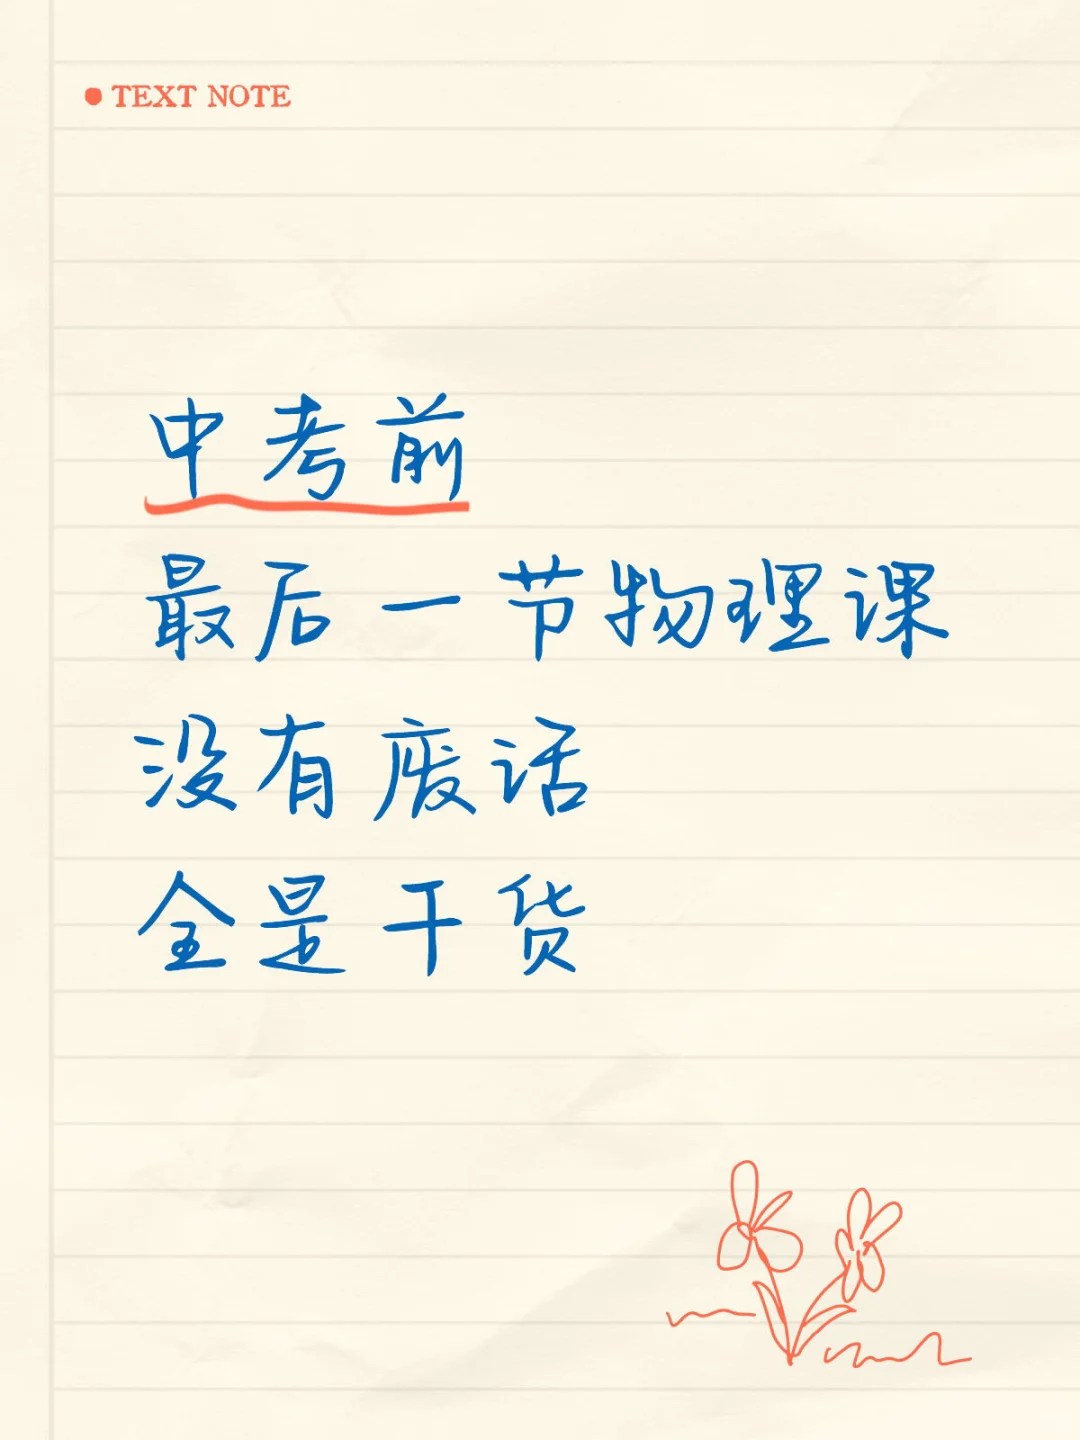 TEXT NOTE
中考前
最后一节物理课
没有废话
全是干货